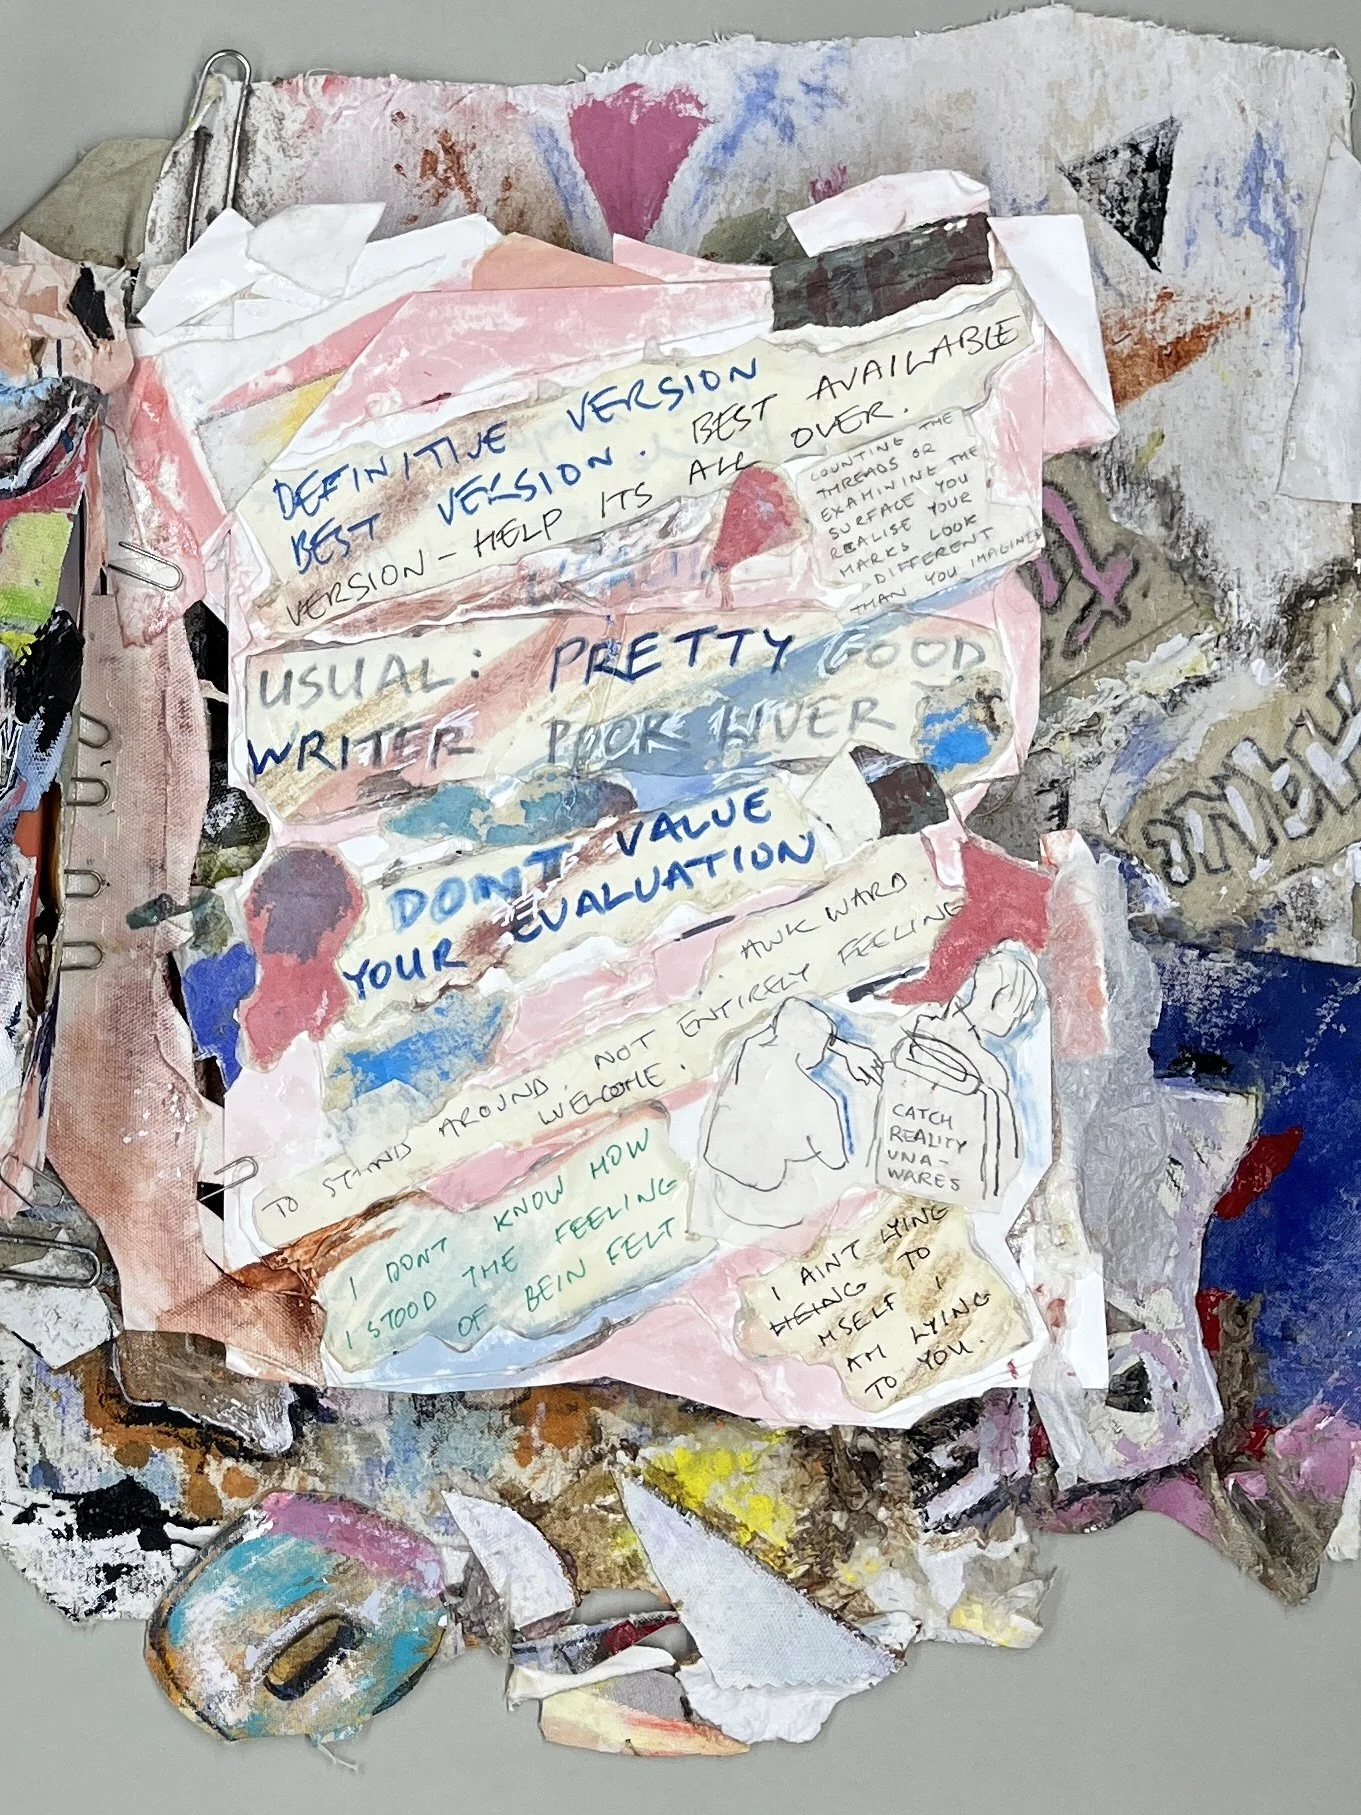 DEFINITIVE VERSION
BEST VERSION. BEST AVAILABLE
VERSION - HELP ITS ALL OVER.
COUNTING THE
THREADS OR
EXAMINING THE
SURFACE YOU
REALISE YOUR
MARKS LOOK
DIFFERENT
THAN YOU IMAGINED
USUAL: PRETTY GOOD
WRITER POOR LIVER
DON'T VALUE
YOUR EVALUATION
TO STAND AROUND. NOT ENTIRELY FEELING
WELCOME. AWKWARD.
CATCH
REALITY
UNA-
WARES
I DONT KNOW HOW
I STOOD THE FEELING
OF BEIN FELT
I AINT LYING
TO
MSELF I
AM LYING
TO YOU.